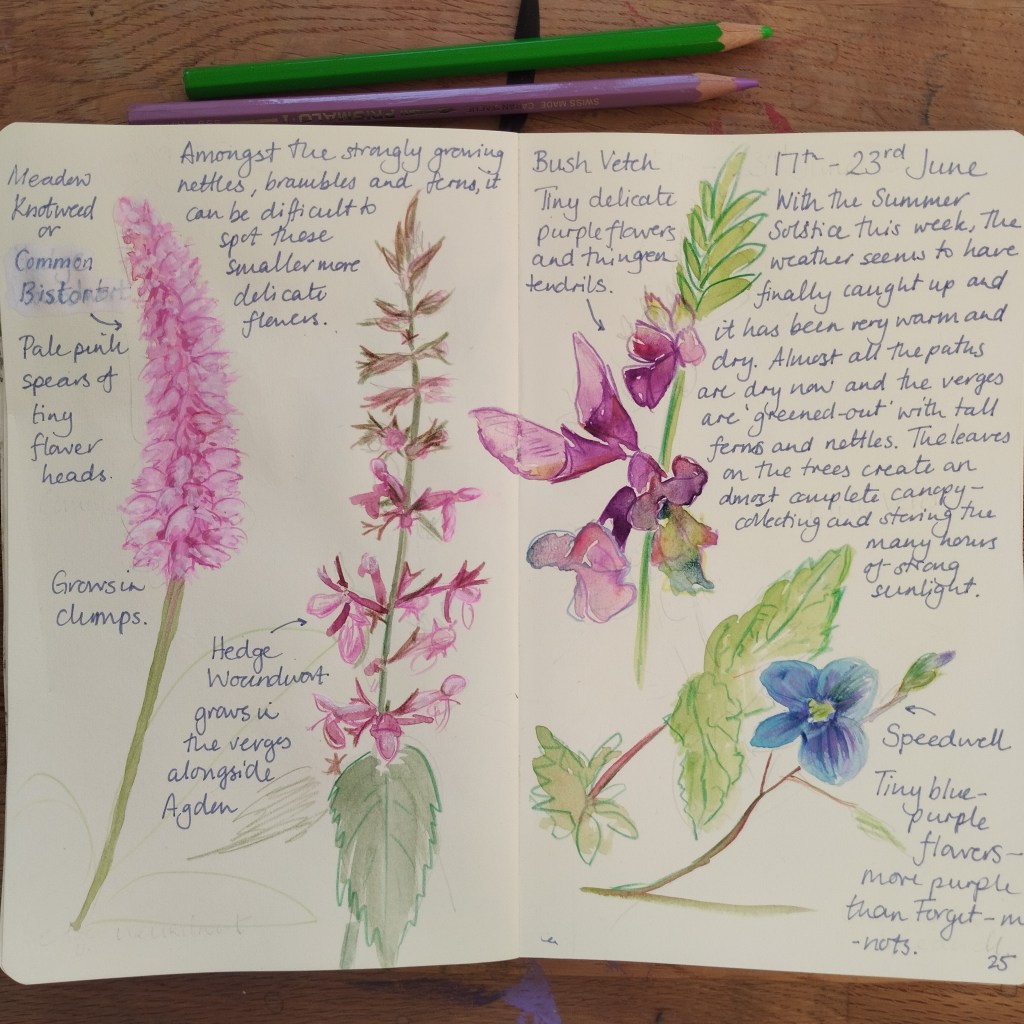 SWISS MADE CARAN D'ACHE
PRISMALO I
Meadow
Knotweed
or
Common
Bistort
Pale pink
spears of
tiny
flower
heads.
Grows in
clumps.
Amongst the strongly growing
nettles, brambles and ferns, it
can be difficult to
spot these
smaller more
delicate
flowers.
Hedge
Woundwort
grows in
the verges
alongside
Agden
Bush Vetch
Tiny delicate
purple flowers
and thin green
tendrils.
17th - 23rd June
With the Summer
Solstice this week, the
weather seems to have
finally caught up and
it has been very warm and
dry. Almost all the paths
are dry now and the verges
are 'greened-out' with tall
ferns and nettles. The leaves
on the trees create an
almost complete canopy -
collecting and storing the
many hours
of strong
sunlight.
Speedwell
Tiny blue-
purple
flowers -
more purple
than Forget-m
-nots.
25